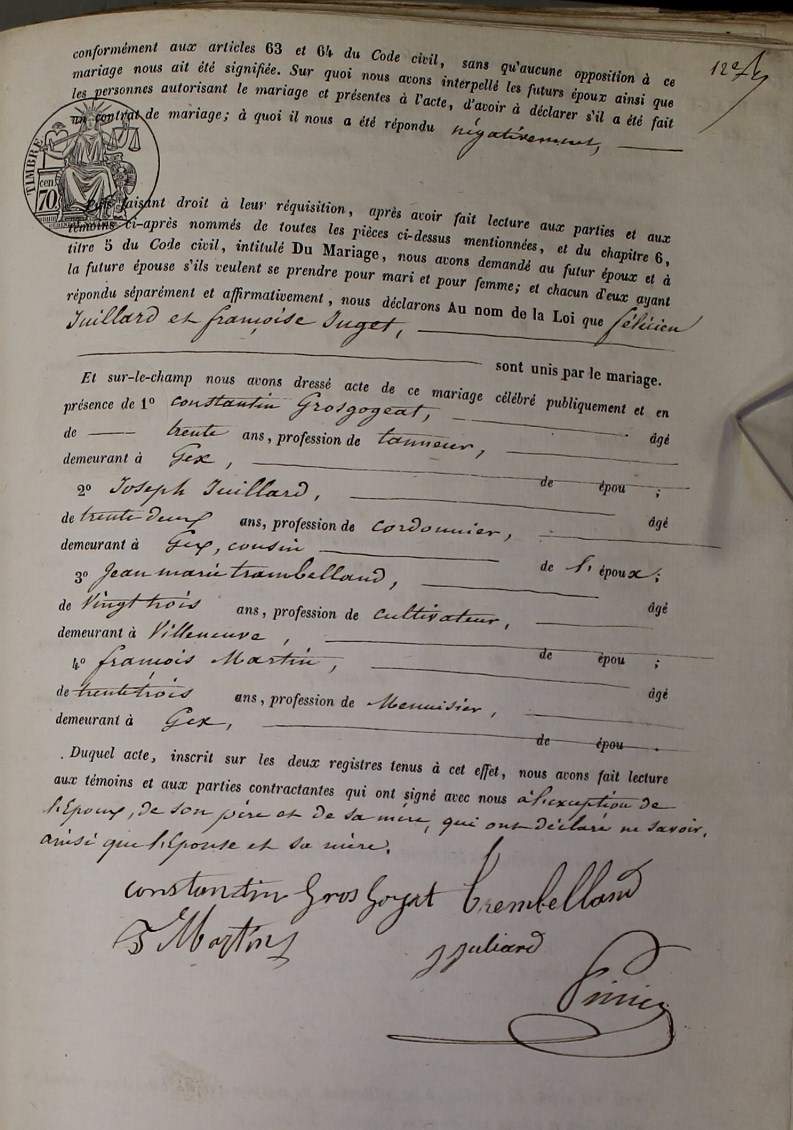 12e
conformément aux articles 63 et 64 du Code civil, sans qu'aucune opposition à ce
mariage nous ait été signifiée. Sur quoi nous avons interpellé les futurs époux ainsi que
les personnes autorisant le mariage et présentes à l'acte, d'avoir à déclarer s'il a été fait
un contrat de mariage; à quoi il nous a été répondu négativement,
TIMBRE
cen
70
Puis faisant droit à leur réquisition, après avoir fait lecture aux parties et aux
témoins ci-après nommés de toutes les pièces ci-dessus mentionnées, et du chapitre 6,
titre 5 du Code civil, intitulé Du Mariage, nous avons demandé au futur époux et à
la future épouse s'ils veulent se prendre pour mari et pour femme; et chacun d'eux ayant
répondu séparément et affirmativement, nous déclarons Au nom de la Loi que félicien
Juillard et françoise Juget,
sont unis par le mariage.
Et sur-le-champ nous avons dressé acte de ce mariage célébré publiquement et en
présence de 1o constantin Grosgogeat, âgé
de trente ans, profession de tanneur,
demeurant à Gex, de épou ;
2o Joseph Juillard, âgé
de trente deux ans, profession de cordonnier,
demeurant à Gex, cousin de l'époux;
3o Jean marie trambelland, âgé
de vingt trois ans, profession de cultivateur,
demeurant à Villeneuve, de épou ;
4o francois Martin, âgé
de trente trois ans, profession de Menuisier,
demeurant à Gex, de épou .
Duquel acte, inscrit sur les deux registres tenus à cet effet, nous avons fait lecture
aux témoins et aux parties contractantes qui ont signé avec nous à l'exception de
l'Epoux, de son père et de sa mère, qui ont déclaré ne savoir,
ainsi que l'Epouse et sa mère.
constantin Gros Gogat trembelland
F Martin J Juliard